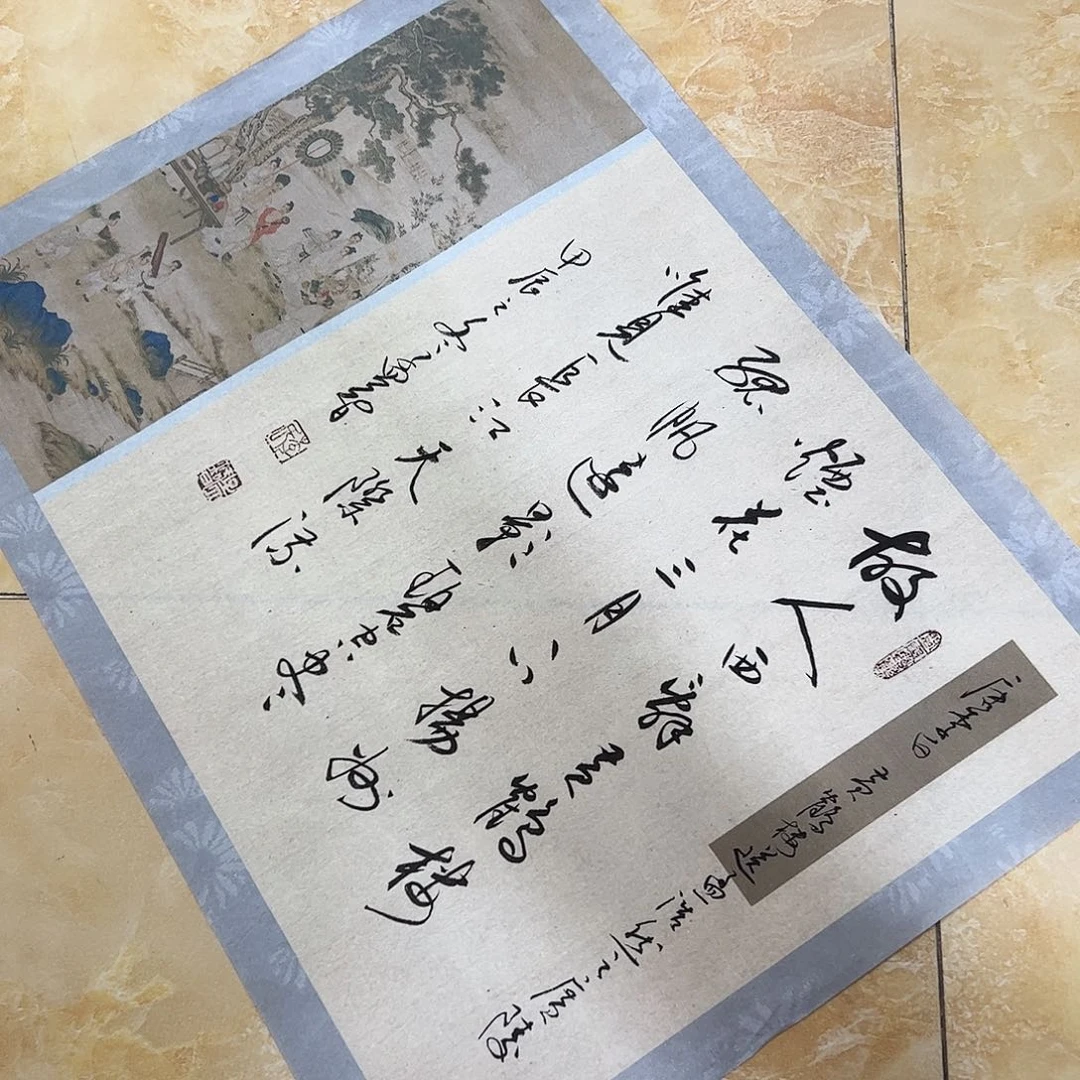 唐李白 黃鶴樓送孟浩然之廣陵
故人西辭黃鶴樓
煙花三月下揚州
孤帆遠影碧空盡
惟見長江天際流
甲辰之冬